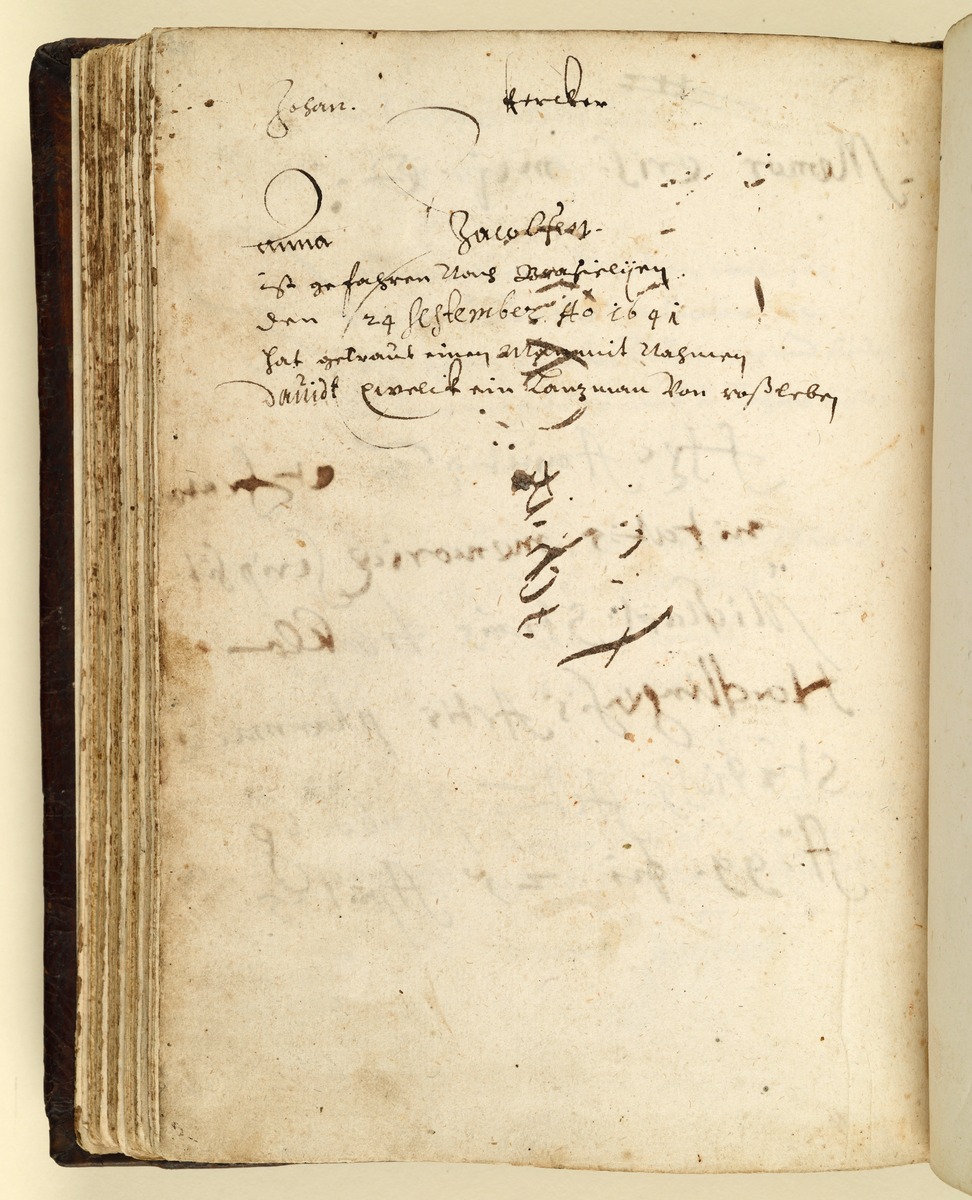 Johan. kercker
anna Jacobsen.
ist gefahren Nach Brasielijen
den 24 September Ao 1641
hat getraut einen Man mit Nahmen
dauidt ein Lanzman Von roßleben